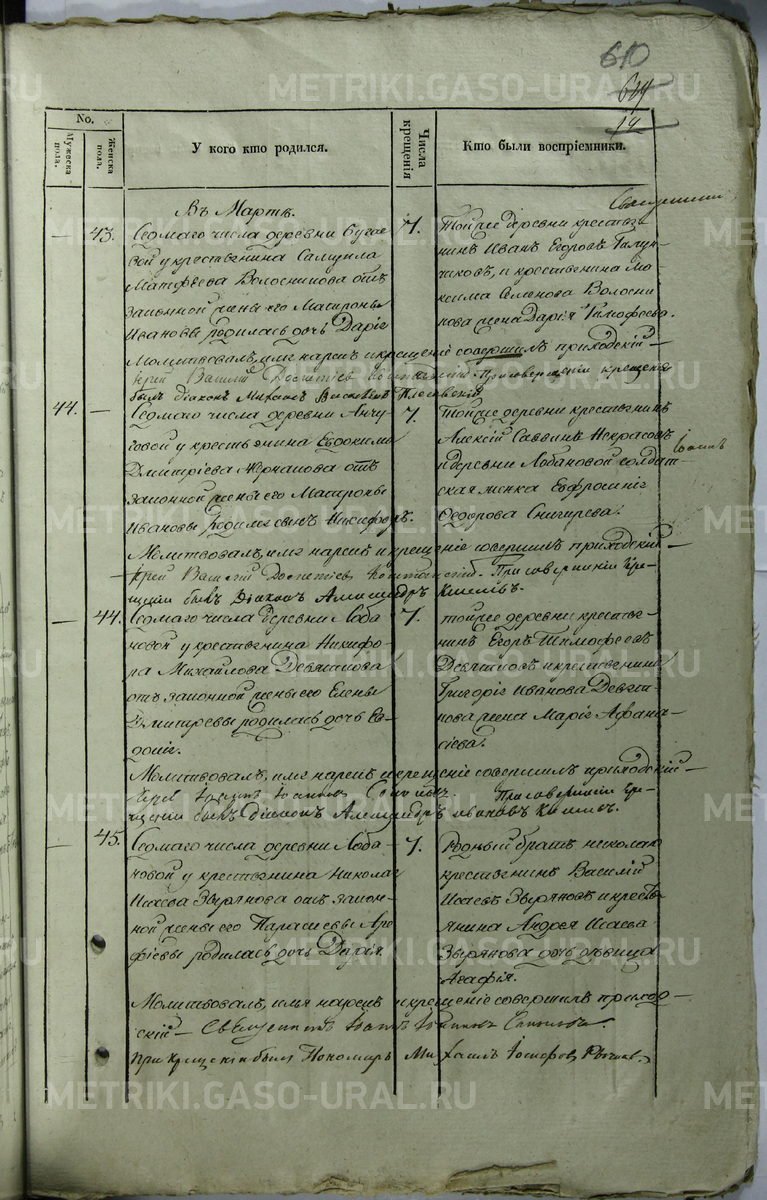 610
614
14
No.
Мужеска пола.
Женска пола.
У кого кто родился.
Числа крещенія
Кто были воспріемники.
Въ Мартѣ.
43.
Седмаго числа деревни
вой у крестьянина
Матфѣева Волосникова отъ
законной жены его Матроны
Ивановы родилась дочь Дарія
7.
Тойже деревни крестьян-
нинъ Иванъ Егоровъ
и крестьянина Ма-
ксима Семенова Волосни-
кова жена Дарія Тимофеева.
Молитвовалъ, имя нарекъ и крещеніе совершилъ приходскій
Іерей Василій При совершеніи крещенія
былъ діаконъ
44.
Седмаго числа деревни Анчу-
говой у крестьянина Евдокима
Дмитріева отъ
законной жены его Матроны
Ивановы родился сынъ Никифоръ.
7.
Тойже деревни крестьянинъ
Алексій Саввинъ Некрасовъ
и деревни Лобановой солдат-
ская женка Евфросинія
Федорова Снигирева.
Молитвовалъ, имя нарекъ и крещеніе совершилъ приходскій
Іерей Василій При совершеніи кре-
щенія былъ Діаконъ Александръ
44.
Седмаго числа деревни Лоба-
новой у крестьянина Никифо-
ра Михайлова Девяткова
отъ законной жены его Елены
Дмитревы родилась дочь Ев-
докія.
7.
тойже деревни крестья-
нинъ Егоръ Тимофеевъ
Девятковъ и крестьянина
Григорія Иванова Девят-
кова жена Марія Афана-
сіева.
Молитвовалъ, имя нарекъ и крещеніе совершилъ приходскій
При совершеніи кре-
щенія былъ діаконъ Александръ
45.
Седмаго числа деревни Лоба-
новой у крестьянина Николая
Исаева Звѣрянова отъ закон-
ной жены его Параскевы Аре-
фіевы родилась дочь Дарія.
7.
Родный братъ николаю
крестьянинъ Василій
Исаевъ Звѣряновъ и кресть-
янина Андрея Исаева
Звѣрянова дочь дѣвица
Агафія.
Молитвовалъ, имя нарекъ и крещеніе совершилъ приход-
скій Священникъ
при крещеніи былъ Пономарь Михаилъ Іосифовъ
METRIKI.GASO-URAL.RU